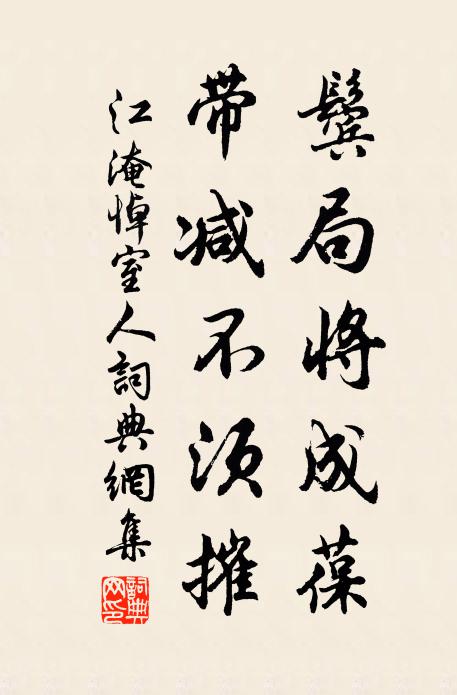 鬓局将成葆
带减不须摧
江淹悼室人詞典網集
詞典网印